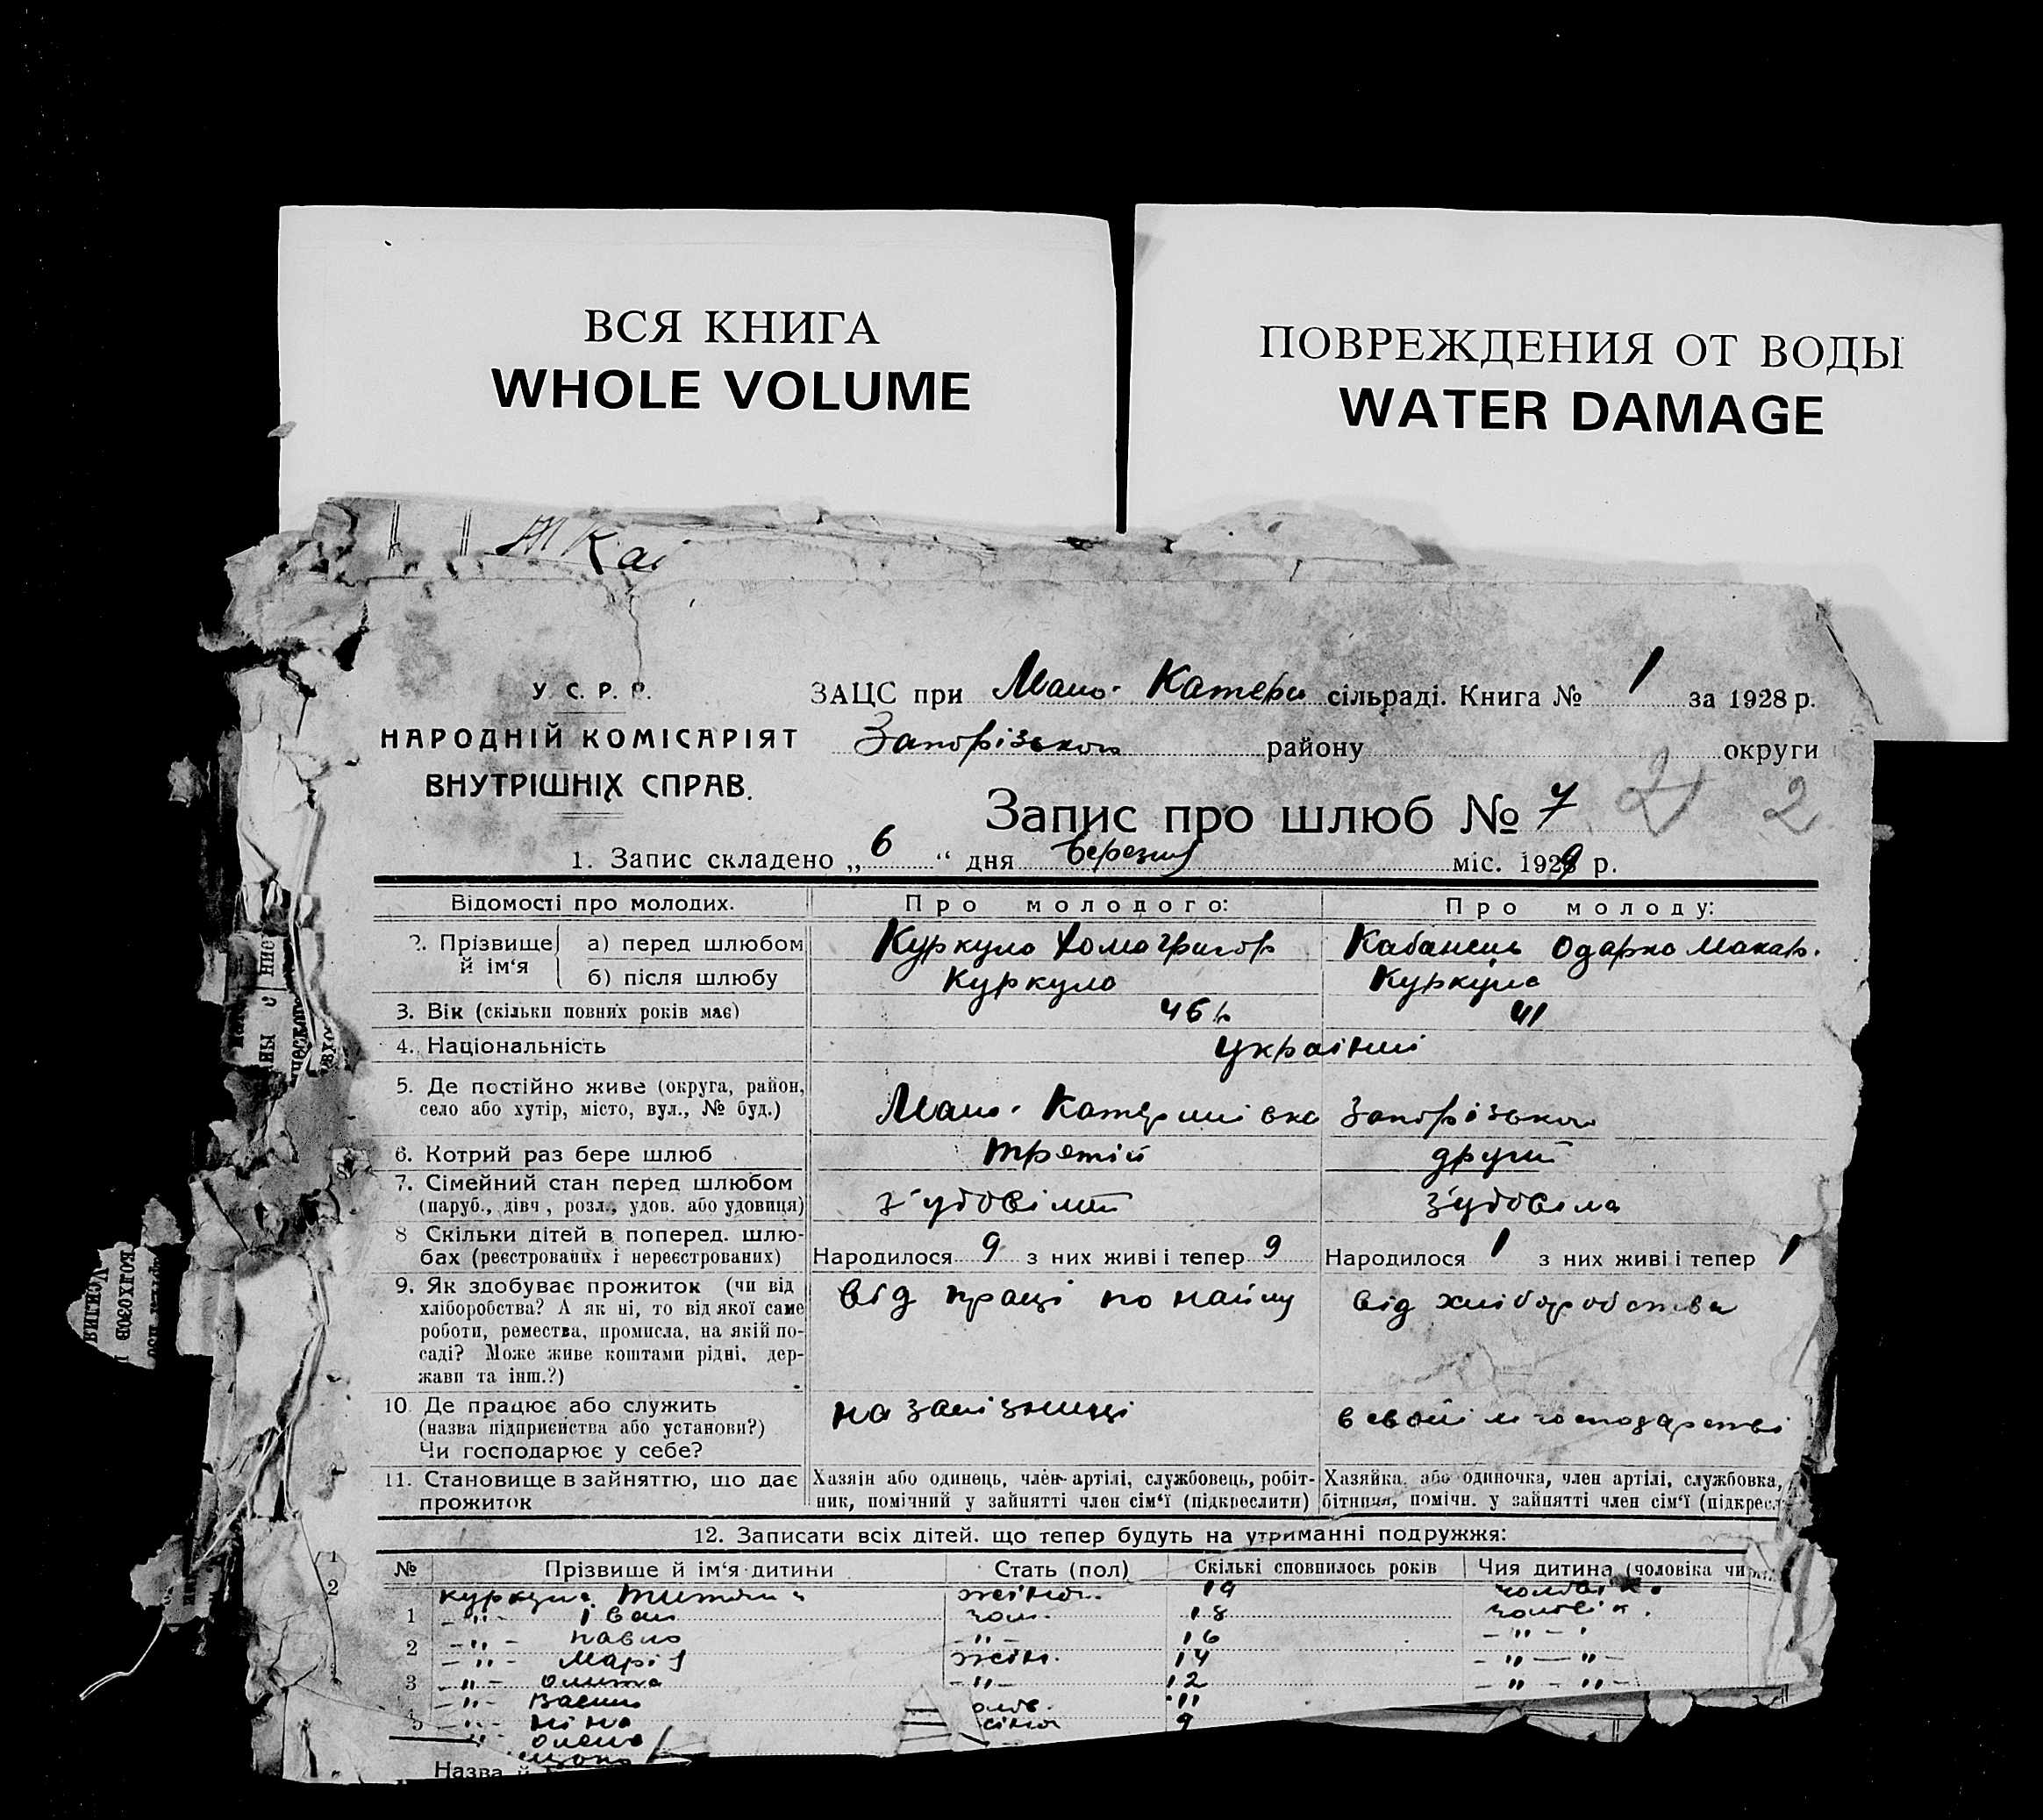 ВСЯ КНИГА
WHOLE VOLUME
ПОВРЕЖДЕНИЯ ОТ ВОДЫ
WATER DAMAGE
У. С. Р. Р.
НАРОДНІЙ КОМІСАРІЯТ
ВНУТРІШНІХ СПРАВ.
ЗАЦС при Мало-Катери сільраді. Книга № 1 за 1928 р.
Запорізького району округи
Запис про шлюб № 7 21 2
1. Запис складено „6“ дня березня міс. 1929 р.
Відомості про молодих. Про молодого: Про молоду:
2. Прізвище й ім‘я а) перед шлюбом Куркуло Хома Григор Кабанець Одарка Макар.
б) після шлюбу Куркуло Куркула
3. Вік (скільки повних років має) 46 р. 41
4. Національність українці
5. Де постійно живе (округа, район, село або хутір, місто, вул., № буд.) Мало-Катеринівка Запорізького
6. Котрий раз бере шлюб третій другий
7. Сімейний стан перед шлюбом (паруб., дівч., розл., удов. або удовиця) з'удовілий з'удовіла
8 Скільки дітей в поперед. шлюбах (реєстрованих і нереєстрованих) Народилося 9 з них живі і тепер 9 Народилося 1 з них живі і тепер 1
9. Як здобуває прожиток (чи від хліборобства? А як ні, то від якої саме роботи, ремества, промисла, на якій посаді? Може живе коштами рідні, держави та інш.?) від праці по найму від хліборобства
10. Де працює або служить (назва підприємства або установи?) Чи господарює у себе? на залізниці в своїм господарстві
11. Становище в зайняттю, що дає прожиток Хазяін або одинець, член артілі, службовець, робітник, помічний у зайнятті член сім‘ї (підкреслити) Хазяйка або одиночка, член артілі, службовка, бітниця, помічн. у зайнятті член сім‘ї (підкресл
12. Записати всіх дітей, що тепер будуть на утриманні подружжя:
№ Прізвище й ім‘я дитини Стать (пол) Скількі сповнилось років Чия дитина (чоловіка чи
Куркула жіноч. 19 чоловіка
1 -"- Іван чол. 18 чоловік.
2 -"- Павло -"- 16 -"-
-"- Марія жін. 14 -"- -"-
3 -"- -"- 12 -"- -"-
4 -"- Василь 11
5 -"- Ніна 9
-"- Олена
Назва й